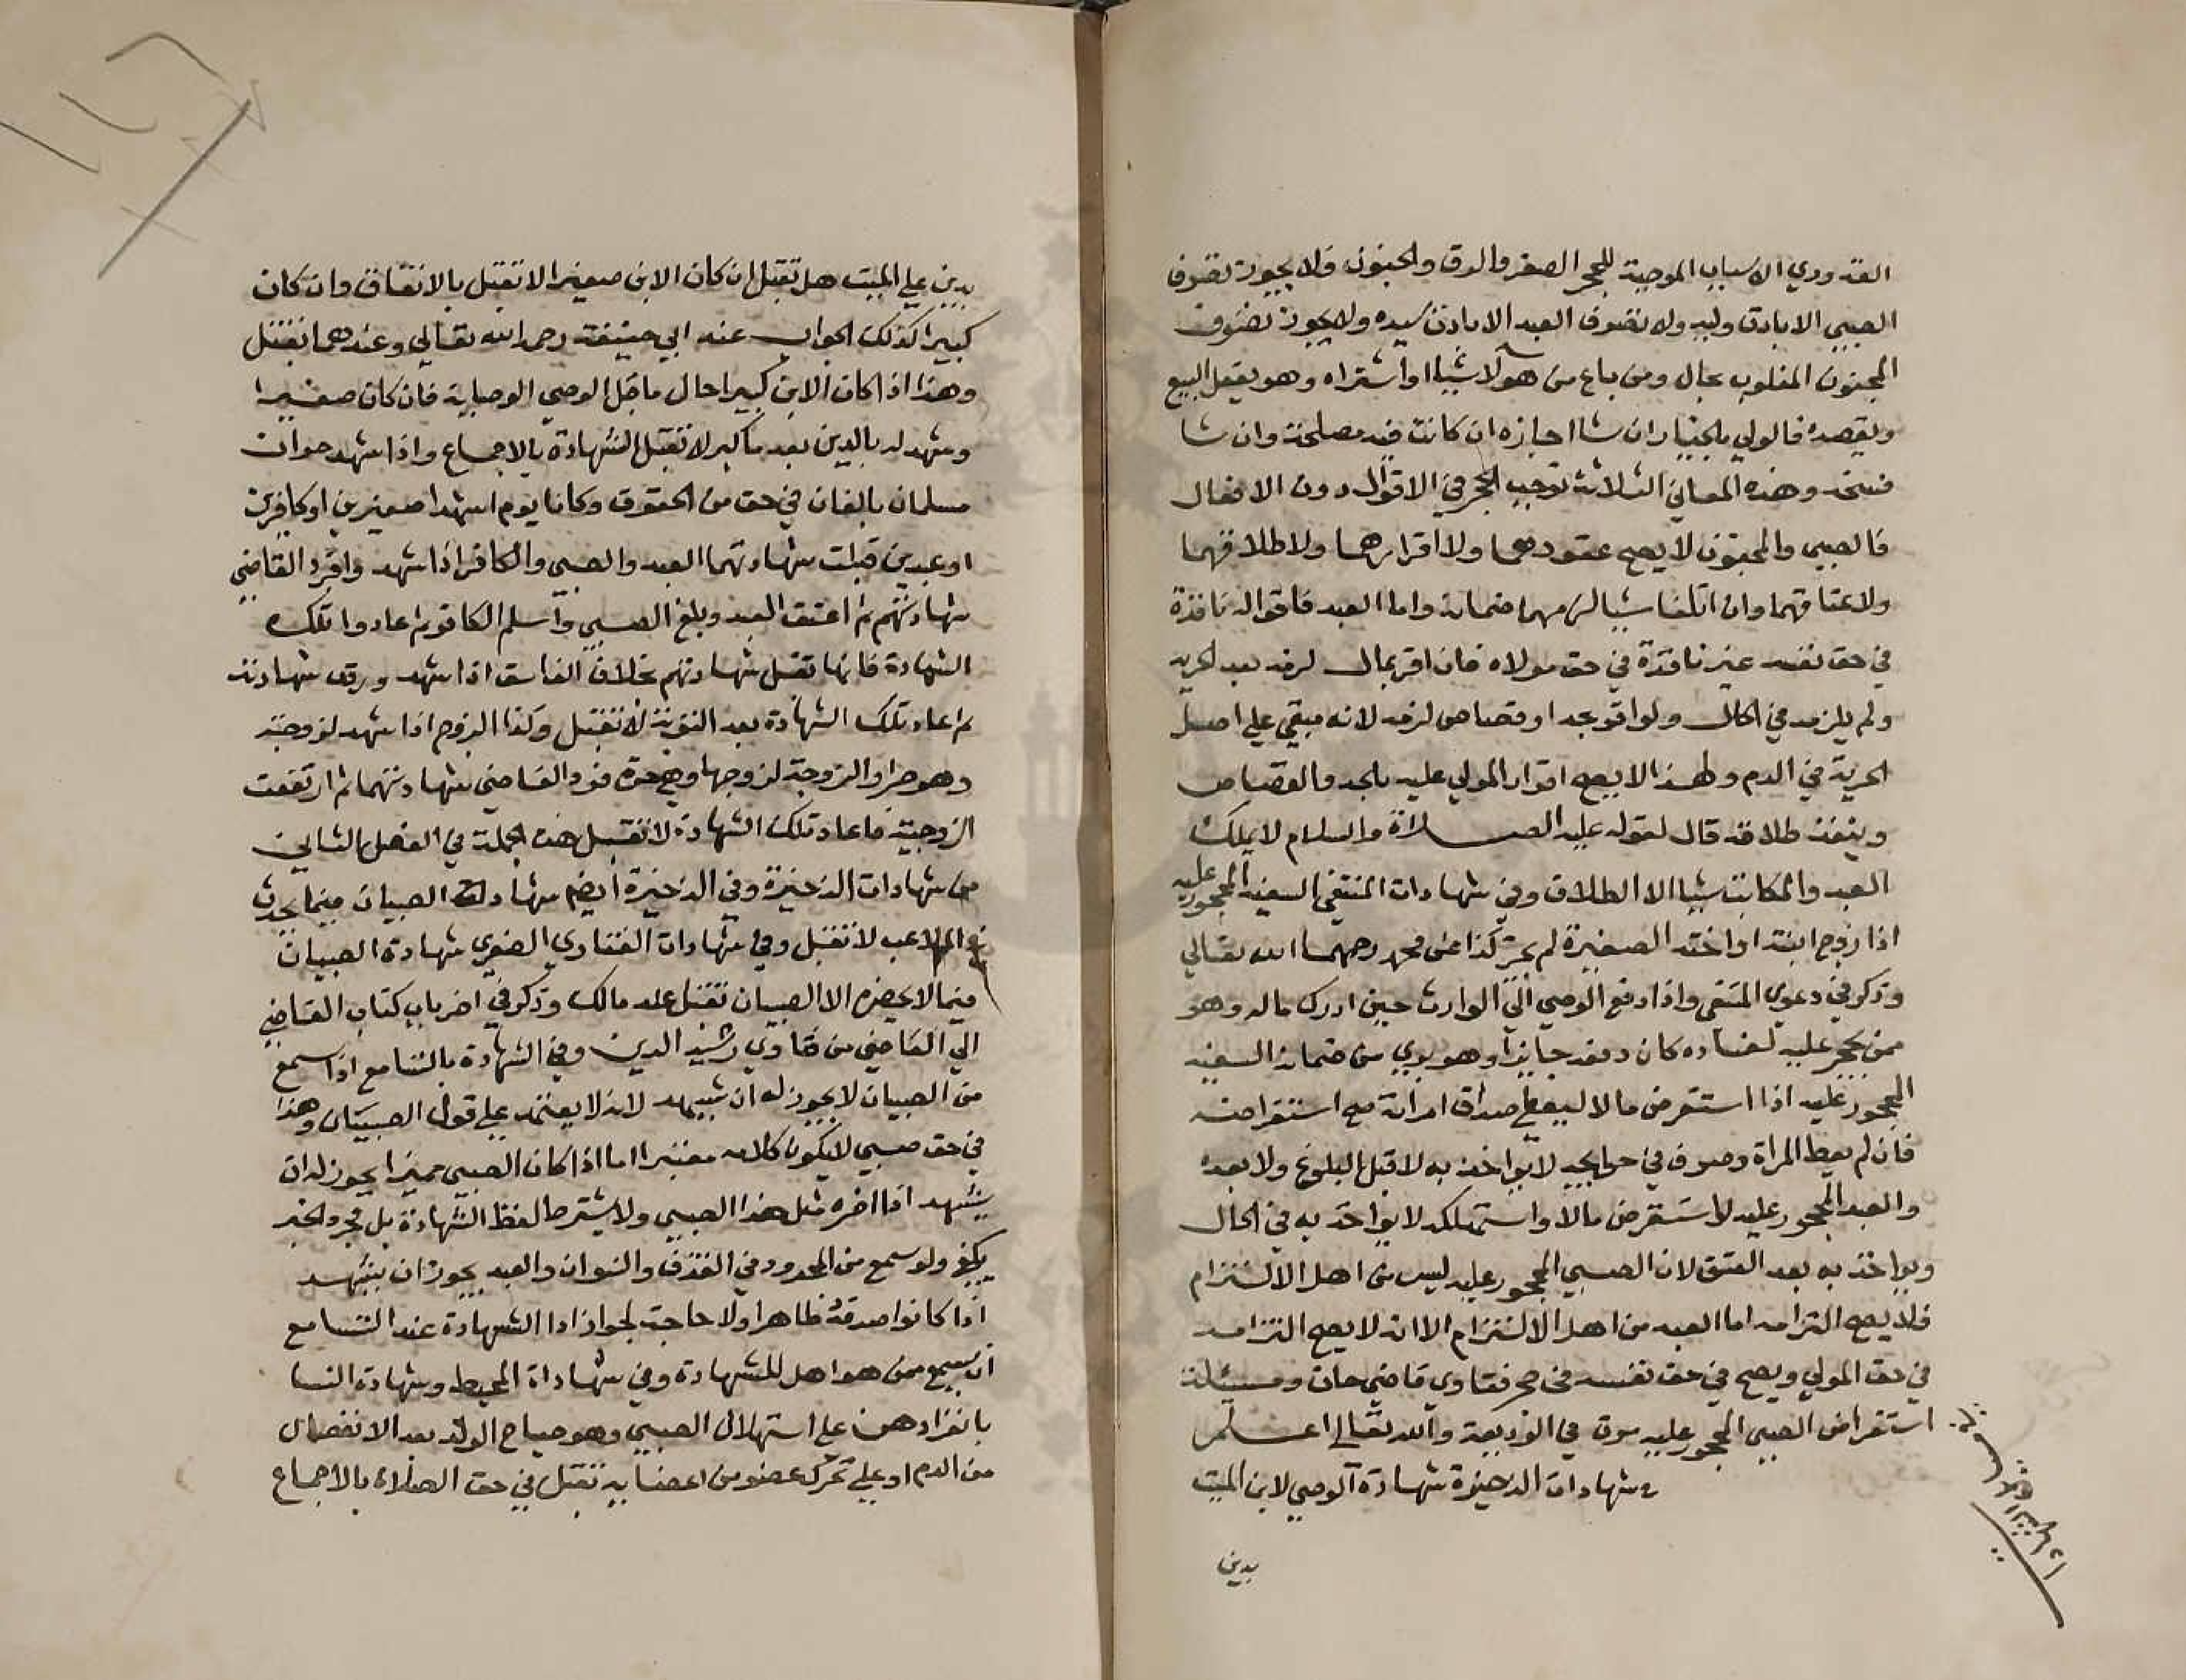 القدوري الاسباب الموجبة للحجر الصغر والرق والجنون فلا يجوز تصرف
الصبي الا باذن وليه ولا تصرف العبد الا باذن سيده ولا يجوز تصرف
المجنون المغلوب بحال ومن باع من هولا شياا واشتراه وهو يعقل البيع
ويقصده فالولي بالخيار ان شا اجازه ان كانت فيه مصلحة وان شا
فسخه وهذه المعاني الثلاثة توجب الحجر في الاقوال دون الافعال
فالصبي والمجنون لا يصح عقودهما ولا اقرارهما ولا طلاقهما
ولا عتاقهما وان اتلفا شيا لزمهما ضمانه واما العبد فاقواله نافذة
في حق نفسه غير نافذة في حق مولاه فان اقر بمال لزمه بعد الحرية
ولم يلزمه في الحال ولو اقر بحد او قصاص لزمه لانه مبقي علي اصل
الحرية في الدم ولهذا لا يصح اقرار المولي عليه بالحد والقصاص
وينفذ طلاقه قال لقوله عليه الصلاة والسلام لا يملك
العبد والمكاتب شيا الا الطلاق وفي شهادات المنتقي السفيه المحجور عليه
اذا زوج ابنته او اخته الصغيرة لم يجز كذا عن محمد رحمهما الله تعالي
وذكر في دعوي المنتقي واذا دفع الوصي الي الوارث حين ادرك ماله وهو
ممن يحجر عليه لفساده كان دفعه جايزا وهو بري من ضمانه السفيه
المحجور عليه اذا استقرض مالا ليعطي صداق امراته صح استقراضه
فان لم يعط المراة وصرف في حوايجه لا يواخذ به لا قبل البلوغ ولا بعده
والعبد المحجور عليه لو استقرض مالا واستهلكه لا يواخذ به في الحال
ويواخذ به بعد العتق لان الصبي المحجور عليه ليس من اهل الالتزام
فلا يصح التزامه اما العبد من اهل الالتزام الا انه لا يصح التزامه
في حق المولي ويصح في حق نفسه في حجر فتاوي قاضي خان ومسيلة
استقراض الصبي المحجور عليه مرت في الوديعة والله تعالي اعلم
شهادات الذخيرة شهادة الوصي لابن الميت
بدين
بدين علي الميت هل تقبل ان كان الابن صغيرا لا تقبل بالاتفاق وان كان
كبيرا كذلك الجواب عند ابي حنيفة رحمه الله تعالي وعندهما تقبل
وهذا اذا كان الابن كبيرا حال ما قبل الوصي الوصاية فان كان صغيرا
وشهد له بالدين بعد ما كبر لا تقبل الشهادة بالاجماع واذا شهد حران
مسلمان بالغان في حق من الحقوق وكانا يوم اشهدا صغيرين او كافرين
او عبدين قبلت شهادتهما العبد والصبي والكافر اذا شهد القاضي
شهادتهم ثم اعتق العبد وبلغ الصبي واسلم الكافر ثم اعادوا تلك
الشهادة فانها تقبل شهادتهم بخلاف الفاسق اذا شهد وردت شهادته
ثم اعاد تلك الشهادة بعد التوبة لا تقبل وكذا الزوج اذا شهد لزوجته
وهو حر او الزوجة لزوجها وهي حرة فرد القاضي شهادتهما ثم ارتفعت
الزوجية فاعاد تلك الشهادة لا تقبل هذه الجملة في الفصل الثاني
من شهادات الذخيرة وفي الذخيرة ايضم شهادة الصبيان فيما يحدث
في الملاعب لا تقبل وفي شهادات الفتاوي الصغري شهادة الصبيان
فيما لا يحضره الا الصبيان تقبل عند مالك وذكر في اخر باب كتاب القاضي
الي القاضي من فتاوي رشيد الدين وفي الشهادة بالتسامع اذا سمع
من الصبيان لا يجوز له ان يشهد لانه لا يعتمد علي قول الصبيان وهذا
في حق صبي لا يكون كلامه معتبرا اما اذا كان الصبي مميزا يجوز له ان
يشهد اذا اخبره مثل هذا الصبي ولا يشترط لفظ الشهادة بل مجرد الخبر
يكفي ولو سمع من المحدود في القذف والنسوان والعبد يجوز ان يشهد
اذا كانوا صدقة ظاهرا ولا حاجة لجواز ادا الشهادة عند التسامع
ان يسمع ممن هو اهل للشهادة وفي شهاداة المحيط وشهادة النسا
بانفرادهن علي استهلال الصبي وهو صياح الولد بعد الانفصال
من الدم او علي تحرك عضو من اعضايه تقبل في حق الصلاة بالاجماع